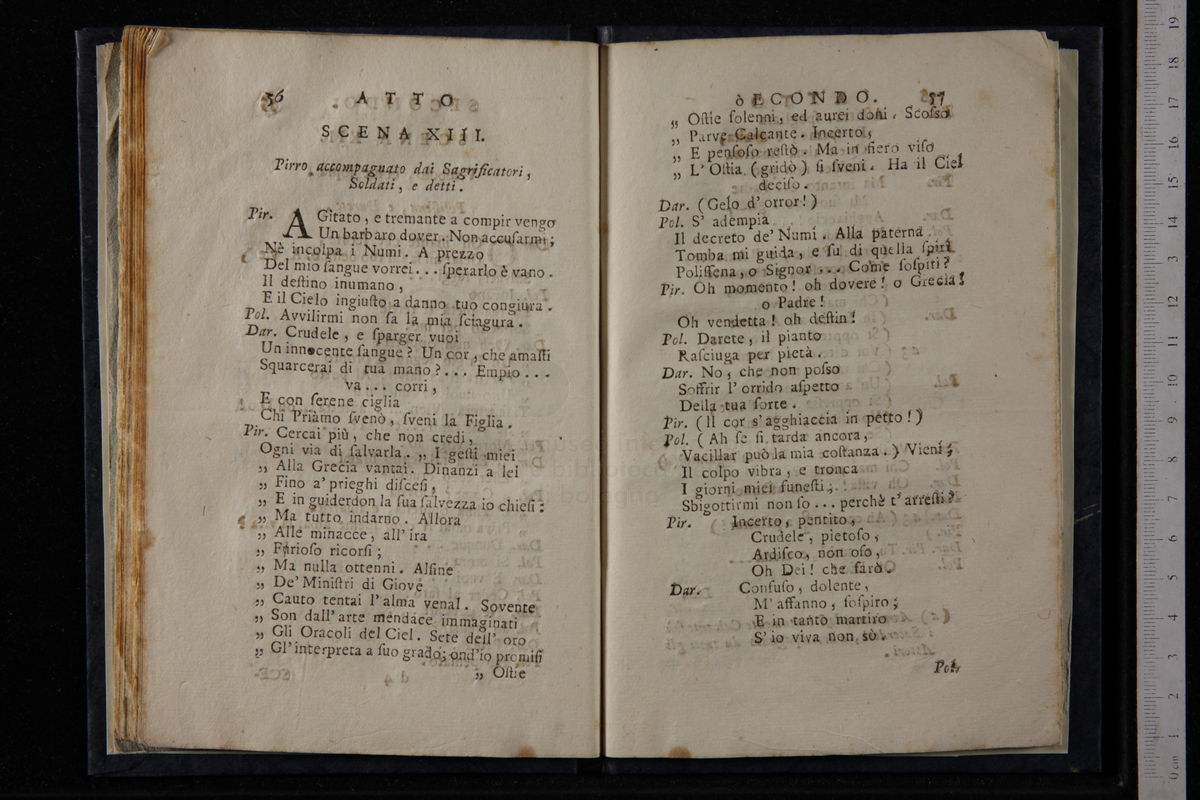 56 ATTO
SCENA XIII.
Pirro accompagnato dai Sagrificatori,
Soldati, e detti.
Pir. AGitato, e tremante a compir vengo
Un barbaro dover. Non accusarmi;
Nè incolpa i Numi. A prezzo
Del mio sangue vorrei... sperarlo è vano.
Il destino inumano,
E il Cielo ingiusto a danno tuo congiura.
Pol. Avvilirmi non sa la mia sciagura.
Dar. Crudele, e sparger vuoi
Un innocente sangue? Un cor, che amasti
Squarcerai di tua mano?... Empio...
va... corri,
E con serene ciglia
Chi Priàmo svenò, sveni la Figlia.
Pir. Cercai più, che non credi,
Ogni via di salvarla. „ I gesti miei
„ Alla Grecia vantai. Dinanzi a lei
„ Fino a' prieghi discesi,
„ E in guiderdon la sua salvezza io chiesi:
„ Ma tutto indarno. Allora
„ Alle minacce, all' ira
„ Furioso ricorsi;
„ Ma nulla ottenni. Alfine
„ De' Ministri di Giove
„ Cauto tentai l' alma venal. Sovente
„ Son dall' arte mendace immaginati
„ Gli Oracoli del Ciel. Sete dell' oro
„ Gl' interpreta a suo grado; ond' io promisi
„ Ostie
SECONDO. 57
„ Ostie solenni, ed aurei doni. Scosso
„ Parve Calcante. Incerto,
„ E pensoso restò. Ma in fiero viso
„ L' Ostia (gridò) si sveni. Ha il Ciel
deciso.
Dar. (Gelo d' orror!)
Pol. S' adempia
Il decreto de' Numi. Alla paterna
Tomba mi guida, e su di quella spiri
Polissena, o Signor... Come sospiri?
Pir. Oh momento! oh dovere! o Grecia!
o Padre!
Oh vendetta! oh destin!
Pol. Darete, il pianto
Rasciuga per pietà.
Dar. No, che non posso
Soffrir l' orrido aspetto
Della tua sorte.
Pir. (Il cor s' agghiaccia in petto!)
Pol. (Ah se si tarda ancora,
Vacillar può la mia costanza.) Vieni;
Il colpo vibra, e tronca
I giorni miei funesti;
Sbigottirmi non so... perchè t' arresti?
Pir. Incerto, pentito,
Crudele, pietoso,
Ardisco, non oso,
Oh Dei! che farò.
Dar. Confuso, dolente,
M' affanno, sospiro;
E in tanto martiro
S' io viva non sò.
Pol.